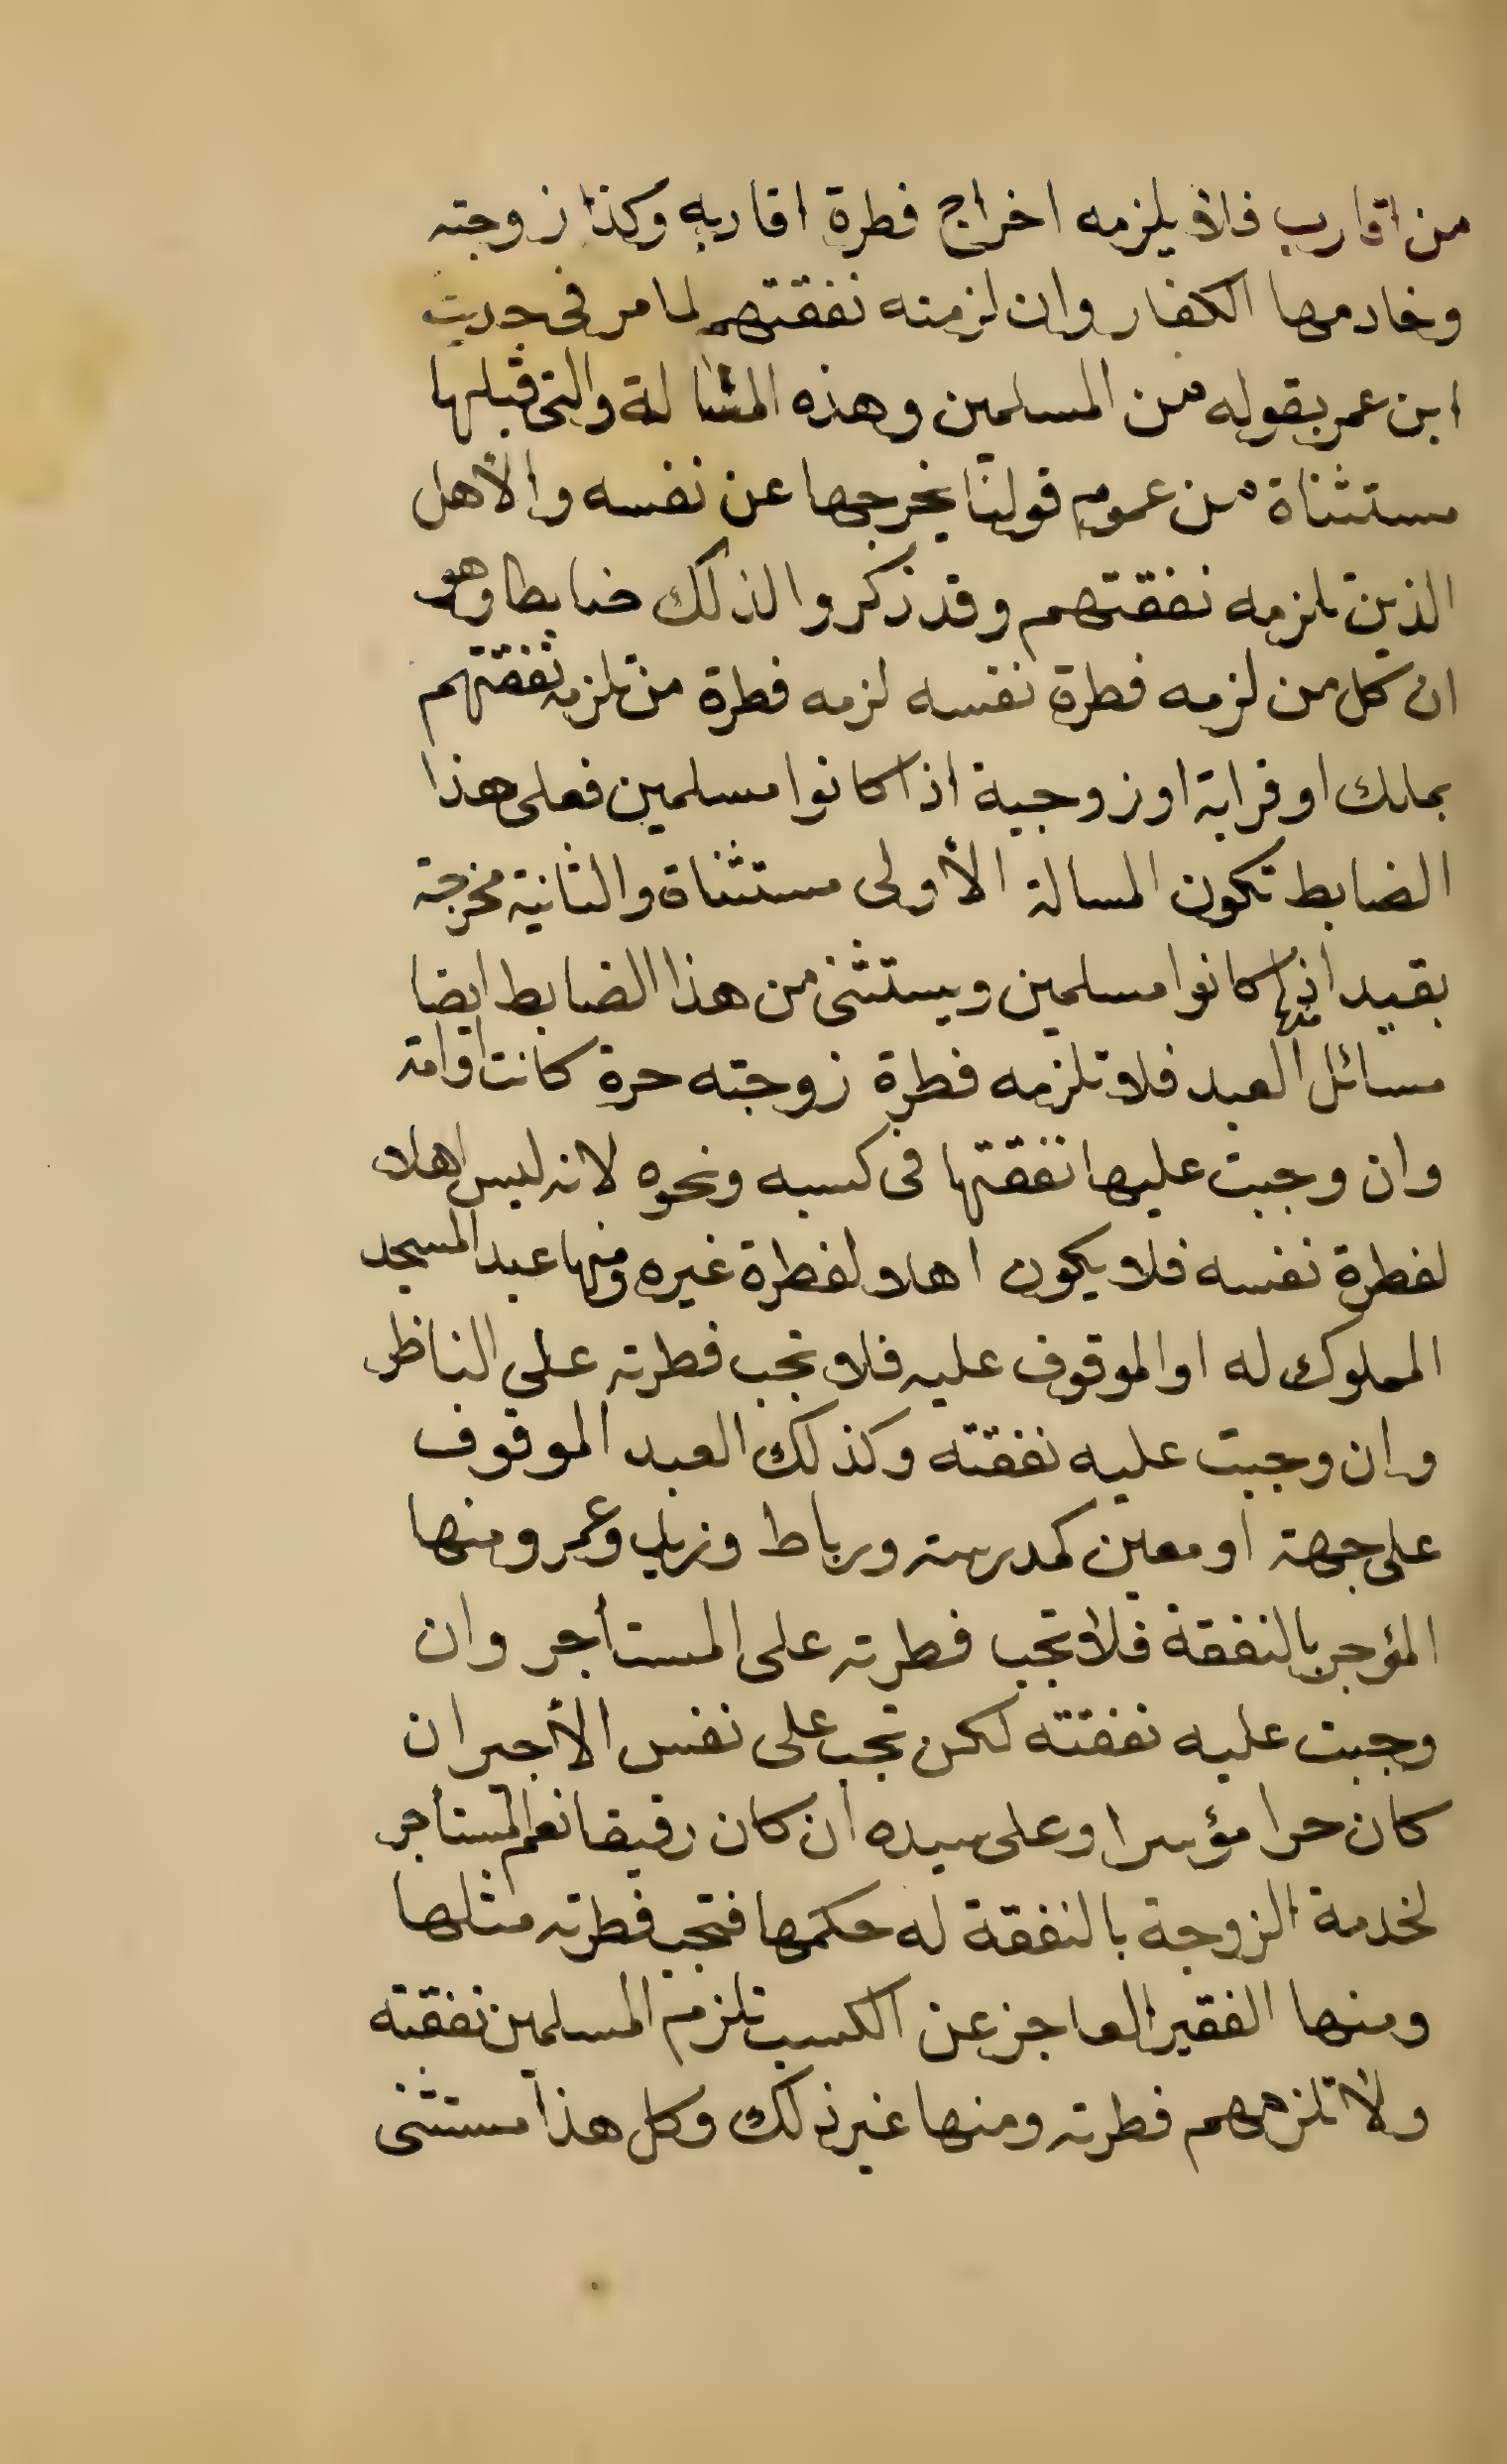 من اقارب فلا يلزمه اخراج فطرة اقاربه وكذا زوجته
وخادمها الكفار وان لزمته نفقتهم لما مر فى حديث
ابن عمر بقوله من المسلمين وهذه المسالة والتى قبلها
مستثناة من عموم قولنا يخرجها عن نفسه والأهل
الذين تلزمه نفقتهم وقد ذكروا لذلك ضابطا وهو
ان كل من لزمه فطرة نفسه لزمه فطرة من تلزمه نفقتهم
بملك او قرابة او زوجية اذا كانوا مسلمين فعلى هذا
الضابط تكون المسالة الأولى مستثناة والثانية مخرجة
بقيد اذا كانوا مسلمين ويستثنى من هذا الضابط ايضا
مسائل منها العبد فلا تلزمه فطرة زوجته حرة كانت او امة
وان وجبت عليها نفقتها فى كسبه ونحوه لانه ليس اهلا
لفطرة نفسه فلا يكون اهلا لفطرة غيره ومنها عبد المسجد
المملوك له او الموقوف عليه فلا تجب فطرته على الناظر
وان وجبت عليه نفقته وكذلك العبد الموقوف
على جهة او معين كمدرسة ورباط وزيد وعمر ومنها
المؤجر بالنفقة فلا تجب فطرته على المستأجر وان
وجبت عليه نفقته لكن تجب على نفس الأجير ان
كان حرا مؤسرا وعلى سيده ان كان رقيقا نعم المستأجر
لخدمة الزوجة بالنفقة له حكمها فتجب فطرته مثلها
ومنها الفقير العاجز عن الكسب تلزم المسلمين نفقته
ولا تلزمهم فطرته ومنها غير ذلك وكل هذا مستثنى